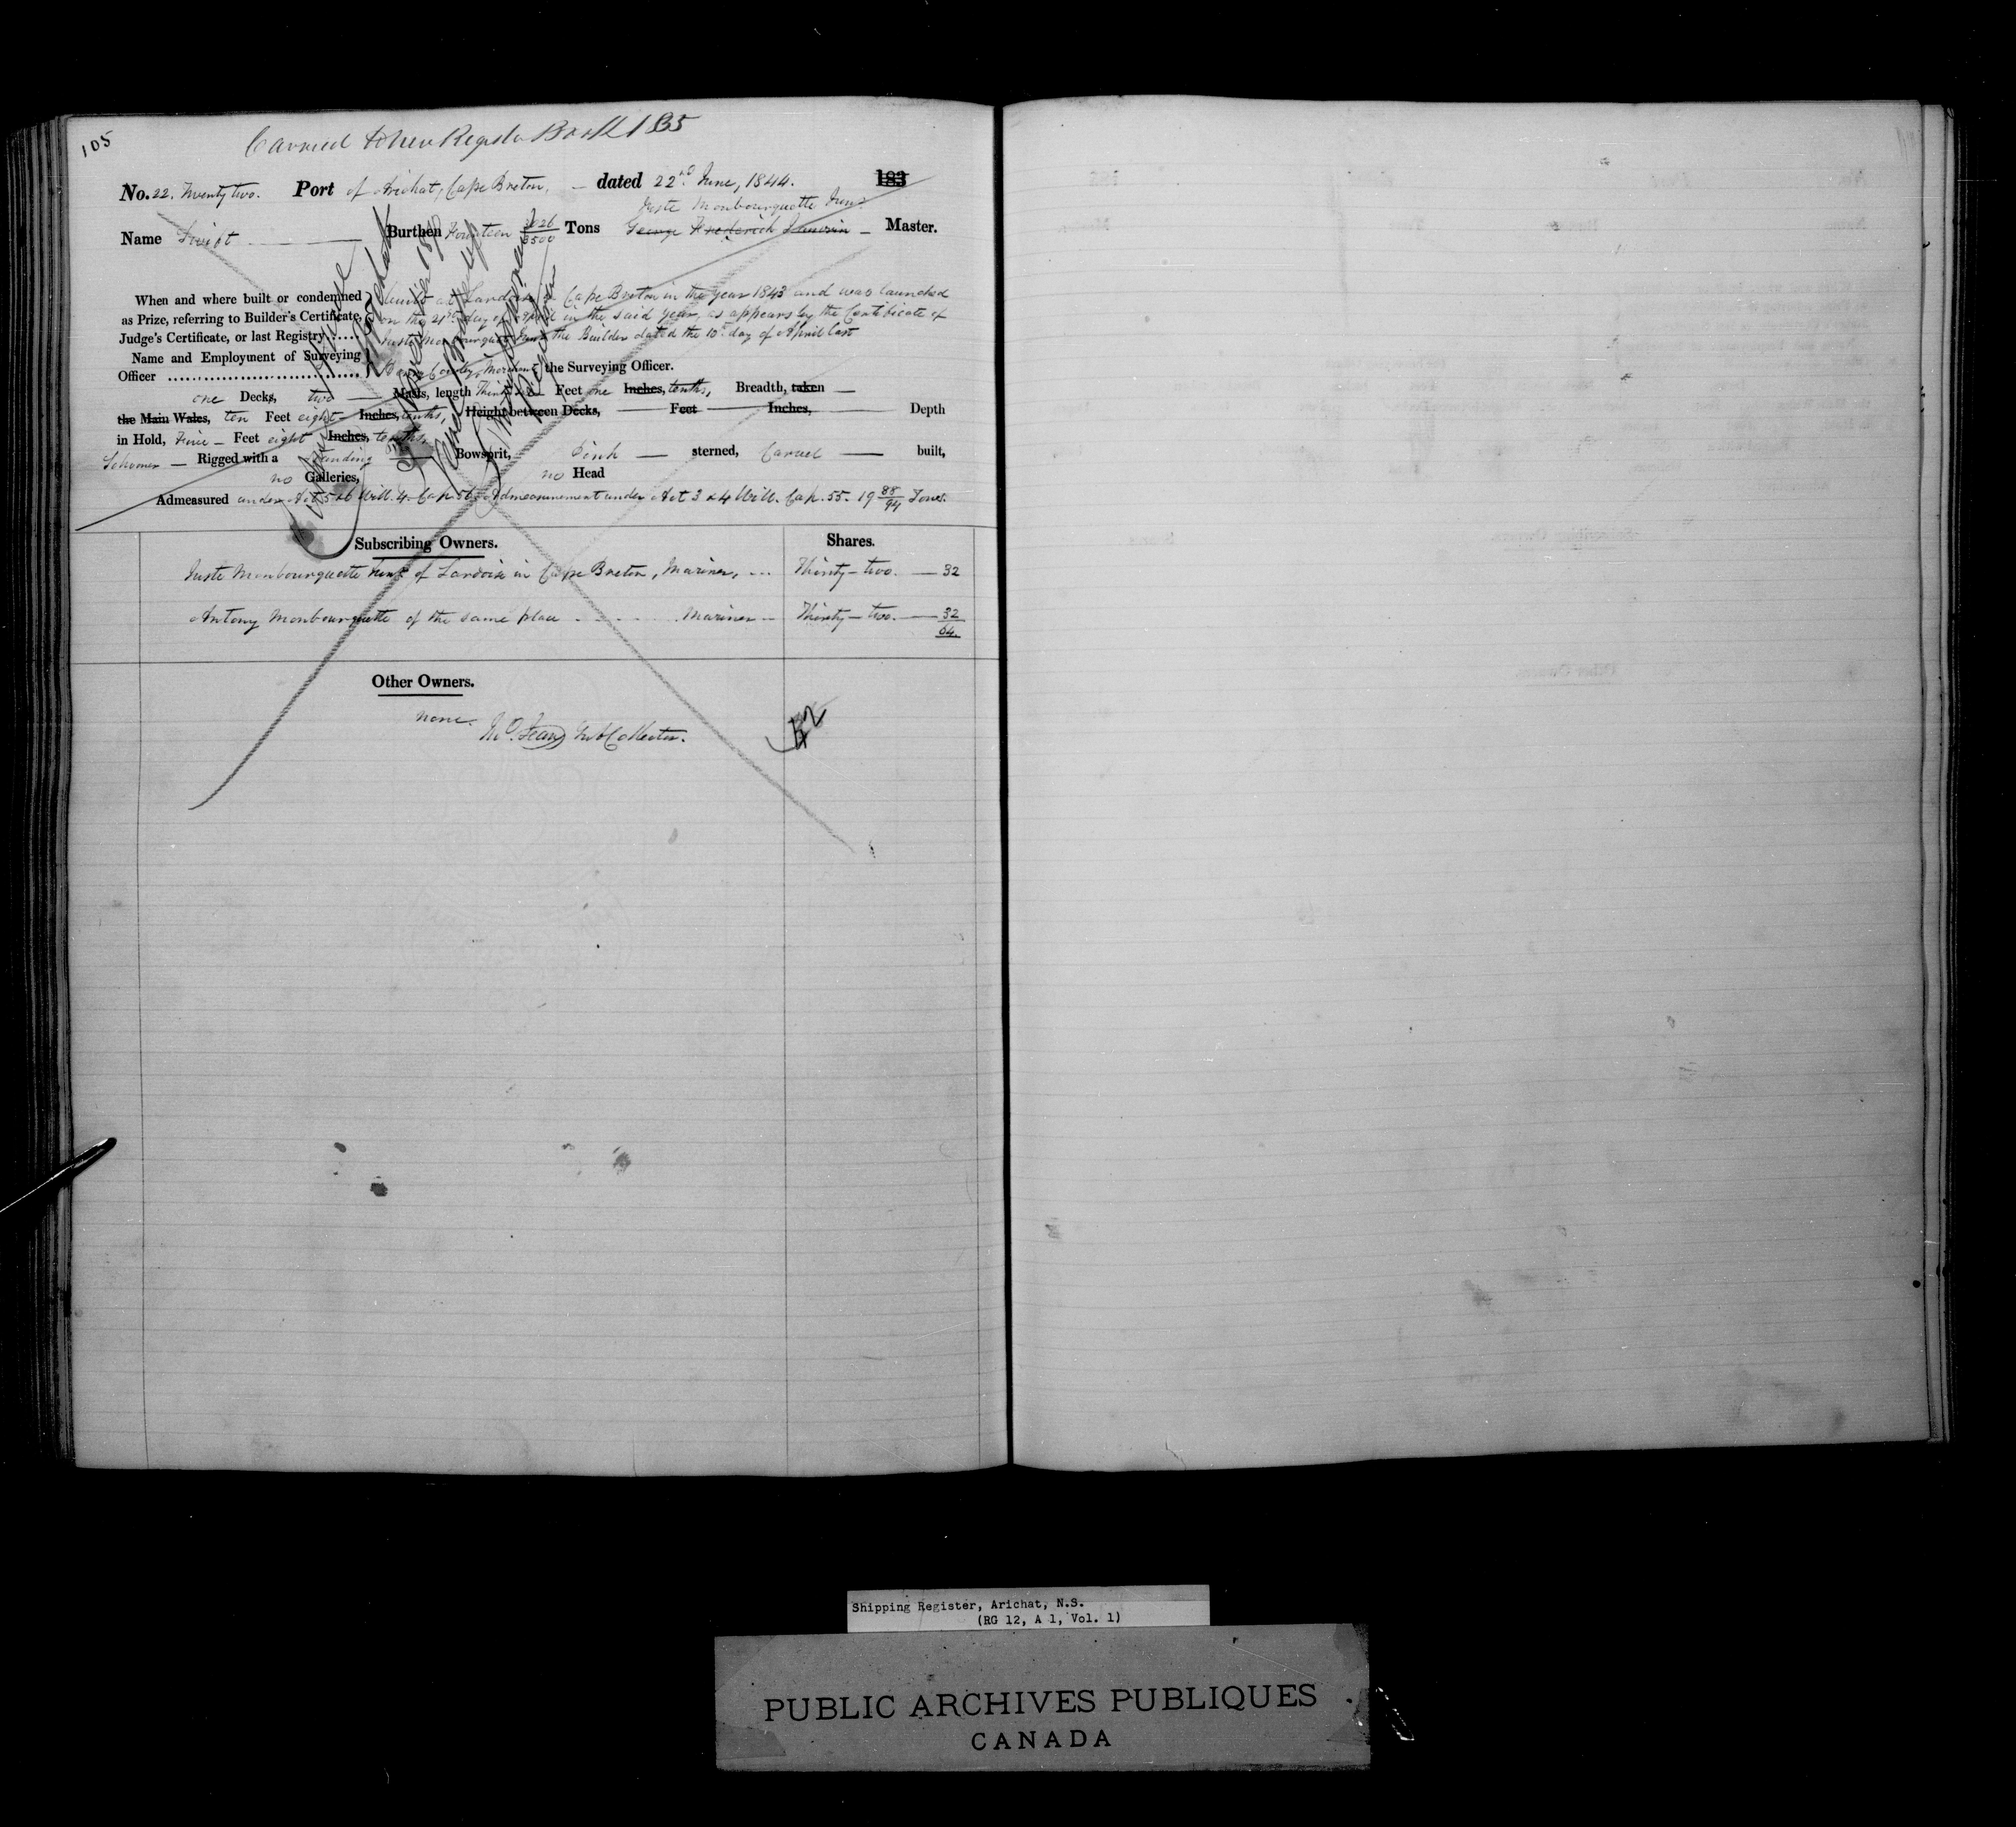 105
Carried to New Register Book 1 B5
No. 22. Twenty two. Port of Arichat, Cape Breton, - dated 22nd June, 1844. 183
Juste Monbourquette Junr
Name Swift Burthen Fourteen 2026/3500 Tons George Frederick - Master.
When and where built or condemned as Prize, referring to Builder's Certificate, Judge's Certificate, or last Registry
built at Lardoise in Cape Breton in the year 1843 and was launched
on the 21st day of April in the said year, as appears by the Certificate of
Juste Monbourquette Junr the Builder dated the 10th day of April last
Name and Employment of Surveying Officer
Merchant the Surveying Officer.
one Decks, two Masts, length Feet one Inches, tenths, Breadth, taken
the Main Wales, ten Feet eight Inches, tenths, Height between Decks, Feet Inches, Depth
in Hold, Five Feet eight Inches, tenths.
Schooner Rigged with a standing Bowsprit, Pink sterned, Carvel built,
no Galleries, no Head
Admeasured under Act 5 & 6 Will. 4. Cap. 56. Admeasurement under Act 3 & 4 Will. Cap. 55. 19 88/94 Tons.
Subscribing Owners. Shares.
Juste Monbourquette Junr of Lardoise in Cape Breton, Mariner, Thirty-two. 32
Antony Monbourquette of the same place Mariner Thirty-two. 32
64.
Other Owners.
none.
Collector.
Shipping Register, Arichat, N.S.
(RG 12, A 1, Vol. 1)
PUBLIC ARCHIVES PUBLIQUES
CANADA